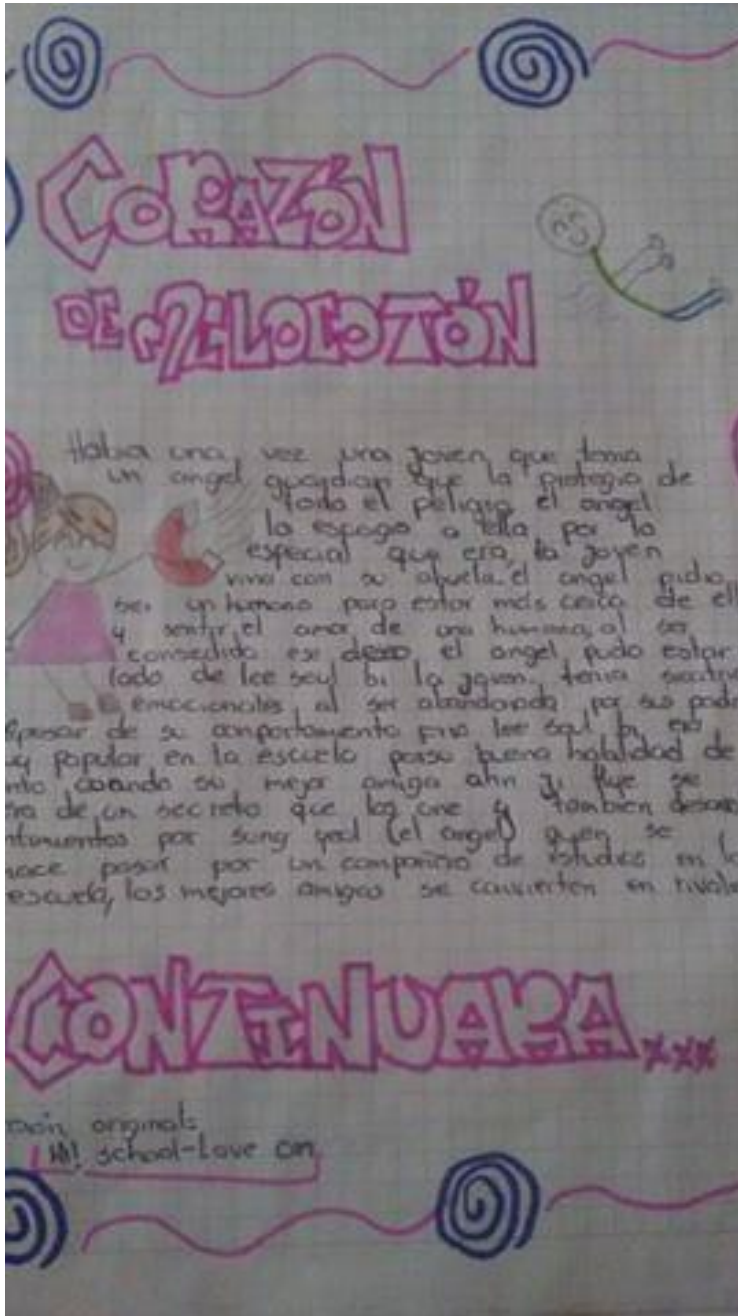 CORAZÓN
DE MELOCOTÓN
Habia una vez una joven que tenia
un angel guardian que la protegia de
todo el peligro el angel
la escogio a ella por lo
especial que era, la joven
vivia con su abuela. el angel pidio
ser un humano para estar más cerca de ell
y sentir el amor de una humana, al ser
consedido ese deseo el angel pudo estar
lado de lee seul bi la joven. tenia
emocionales al ser abandonada por sus padr
Apesar de su comportamiento frio lee seul bi era
uy popular en la escuela por su buena habilidad de
nto, cuando su mejor amiga ahn ji hye se
ra de un secreto que los une y tambien desarr
ntimientos por sung yeol (el angel) quen se
hace pasar por un compañero de estudios en la
escuela, los mejores amigos se convierten en rivale
CONTINUARA...
originals
Hi! school-Love on